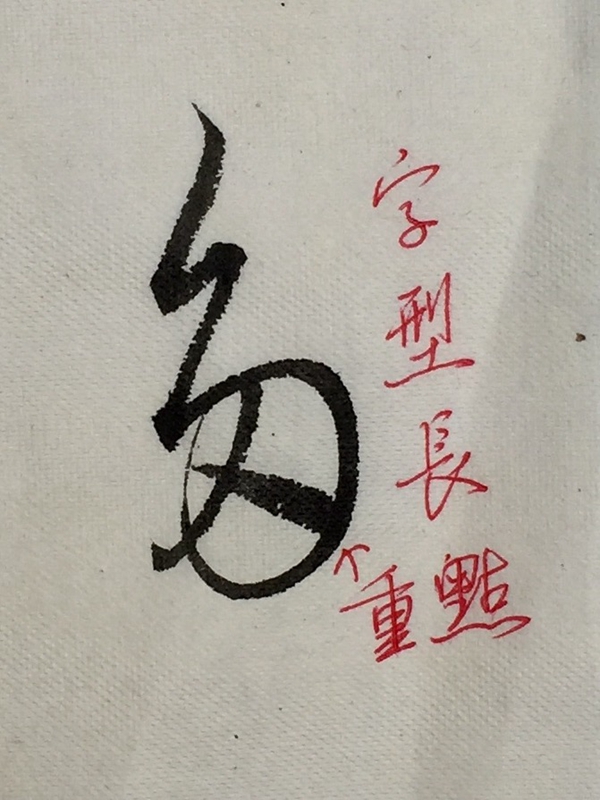 字型長
重點